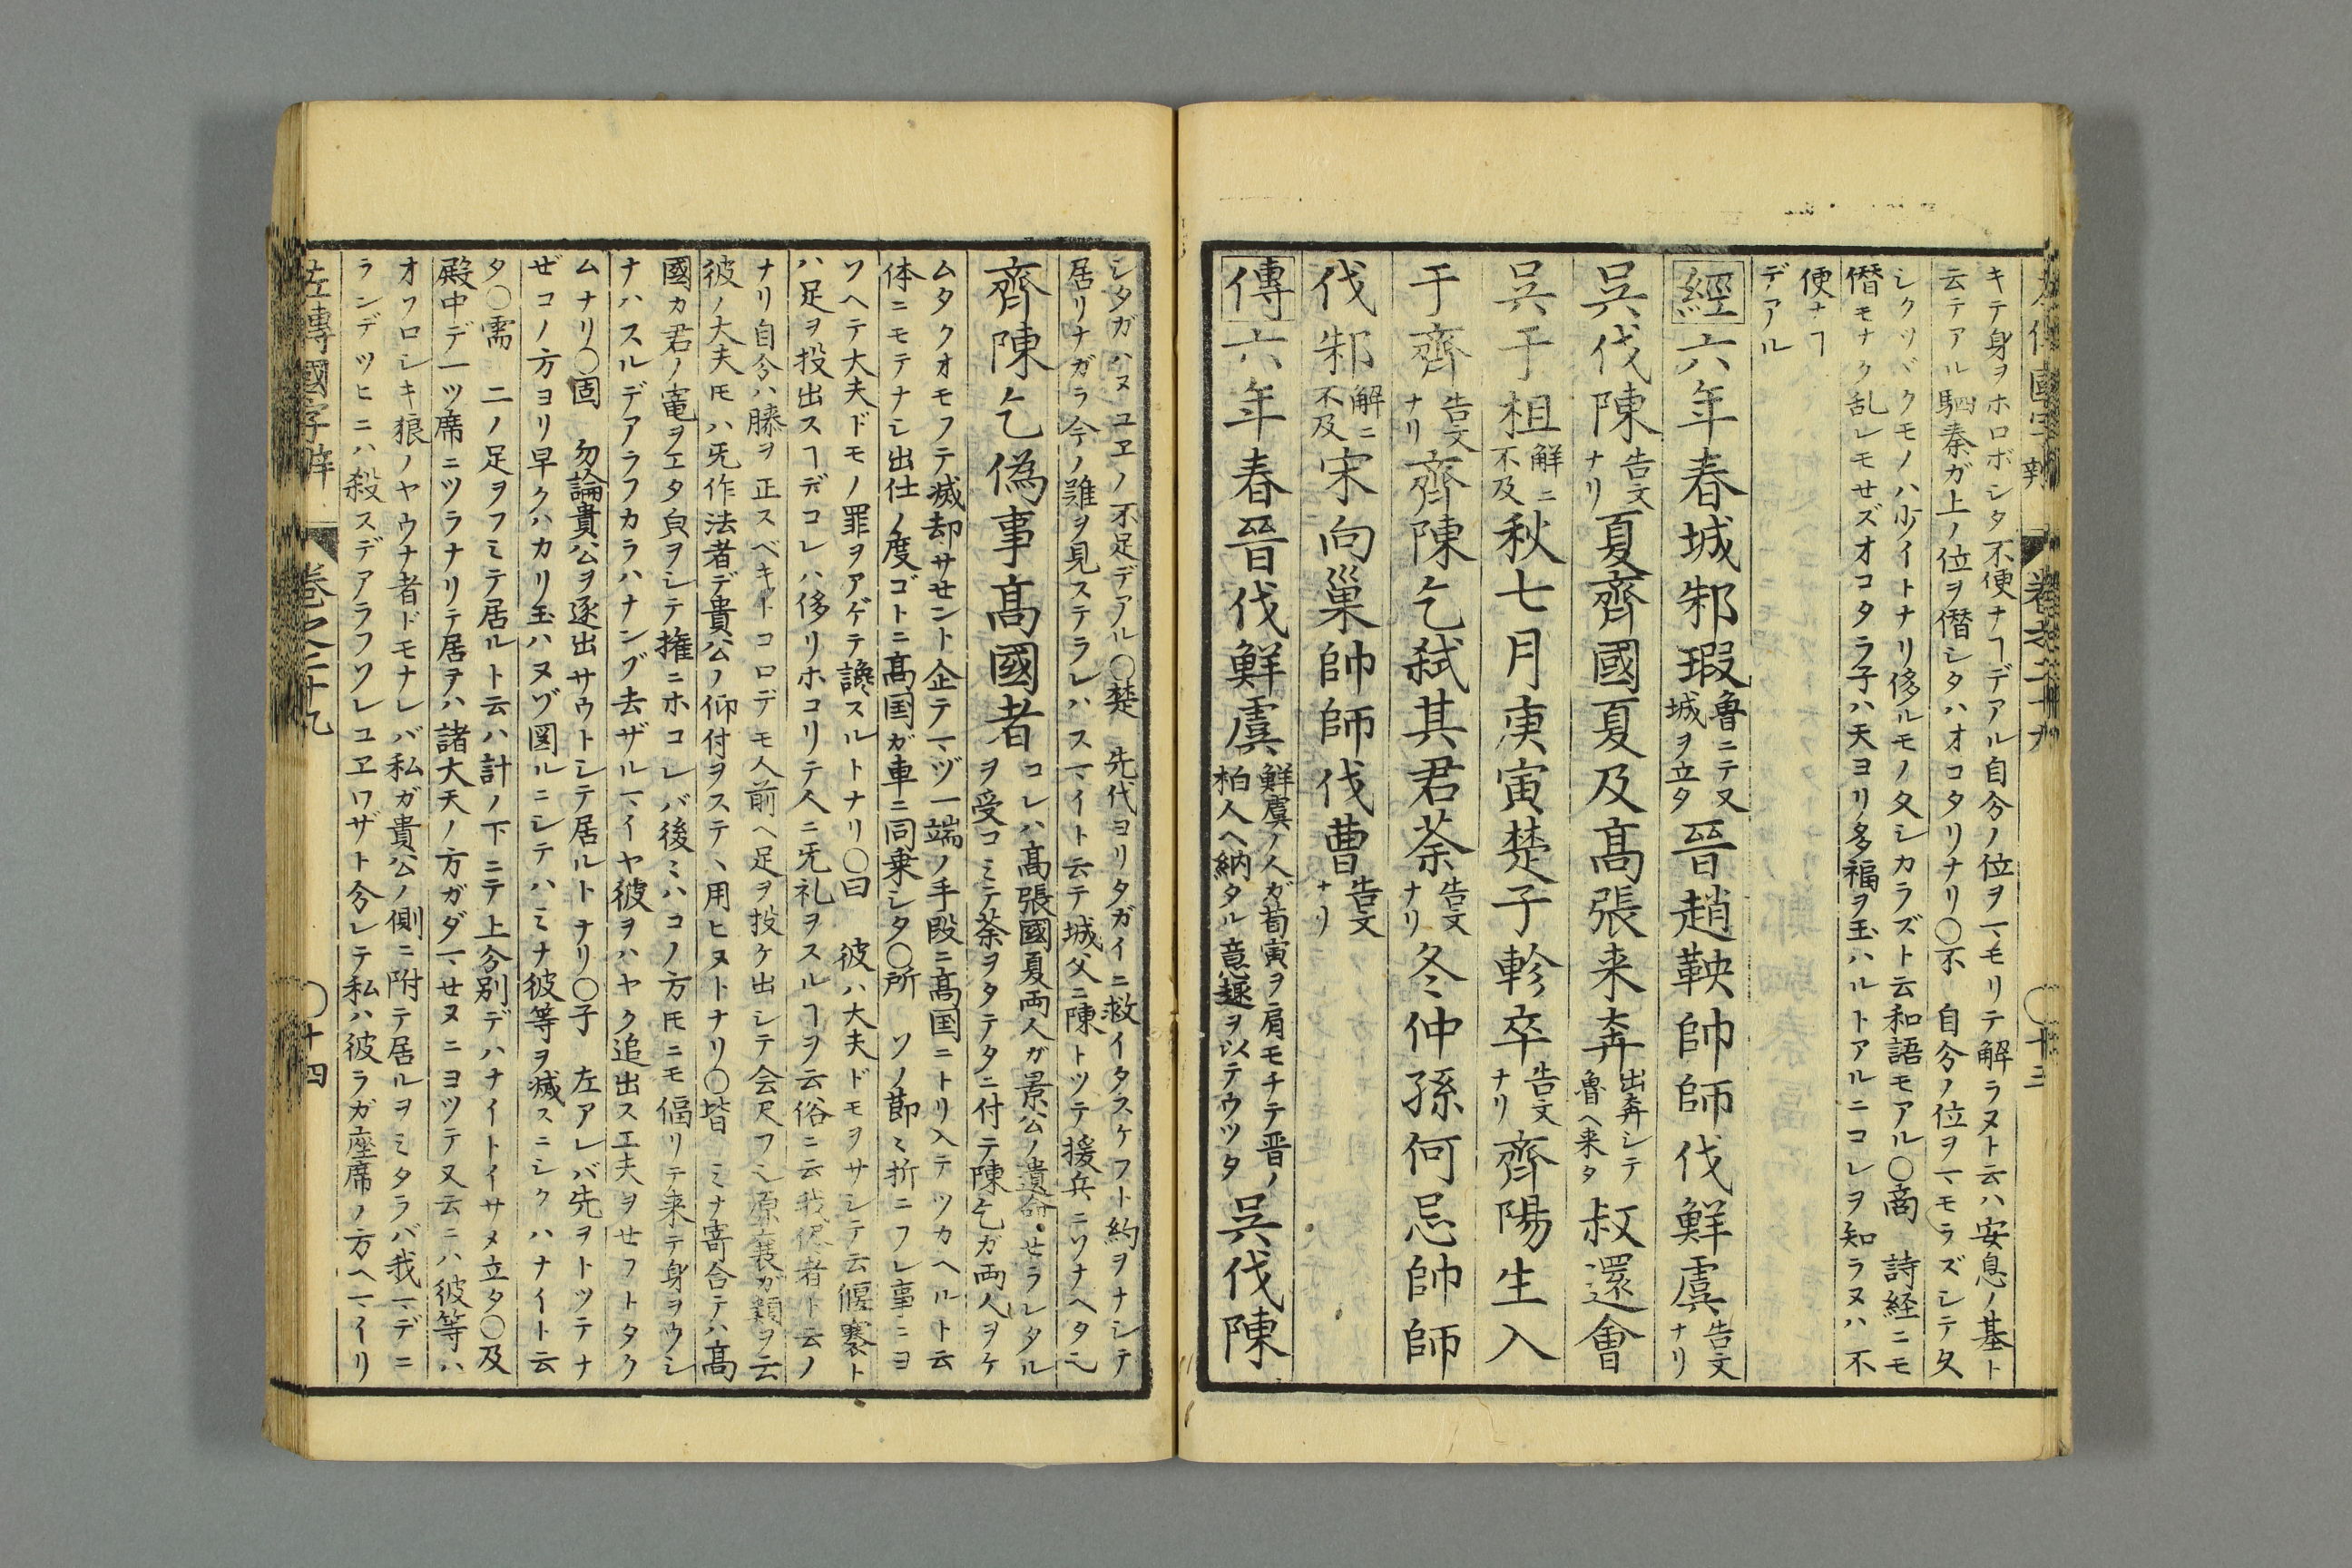 左傳國字辨 卷之二十九 〇十三
キテ身ヲホロボシタ不便ナヿデアル自分ノ位ヲマモリテ解ラヌト云ハ安息ノ基ト
云テアル駟秦ガ上ノ位ヲ僭シタハオコタリナリ〇不 自分ノ位ヲマモラズシテ久
シクツヾクモノハ少イトナリ侈ルモノ久シカラズト云和語モアル〇商 詩経ニモ
僭モナク乱レモセズオコタラ子ハ天ヨリ多福ヲ玉ハルトアルニコレヲ知ラヌハ不
便ナヿ
デアル
經六年春城邾瑕魯ニテ又城ヲ立タ晉趙鞅帥師伐鮮虞告文ナリ
呉伐陳告文ナリ夏齊國夏及髙張来奔出奔シテ魯ヘ来タ叔還會
呉于柤解ニ不及秋七月庚寅楚子軫卒告文ナリ齊陽生入
于齊告文ナリ齊陳乞弑其君荼告文ナリ冬仲孫何忌帥師
伐邾解ニ不及宋向巢帥師伐曹告文ナリ
傳六年春晉伐鮮虞鮮虞ノ人ガ荀寅ヲ肩モチテ晋ノ柏人ヘ納タル意趣ヲ以テウツタ呉伐陳
シタガハヌユヱノ不足デアル〇楚 先代ヨリタガイニ救イタスケフト約ヲナシテ
居リナガラ今ノ難ヲ見ステラレハスマイト云テ城父ニ陳トツテ援兵ニソナヘタ也
齊陳乞偽事髙國者コレハ髙張國夏両人ガ景公ノ遺命セラレタルヲ受コミテ荼ヲタテタニ付テ陳乞ガ両人ヲケ
ムタクオモフテ滅却サセント企テマヅ一端ノ手段ニ髙国ニトリ入テツカヘルト云
体ニモテナシ出仕ノ度ゴトニ髙国ガ車ニ同乗シタ〇所 ソノ節ミ折ニフレ事ニヨ
ソヘテ大夫ドモノ罪ヲアゲテ讒スルトナリ〇曰 彼ハ大夫ドモヲサシテ云偃蹇ト
ハ足ヲ投出スヿデコレハ侈リホコリテ人ニ旡礼ヲスルヿヲ云俗ニ云我侭者ト云ノ
ナリ自分ハ膝ヲ正スベキトコロデモ人前ヘ足ヲ投ケ出シテ会尺フ乀原壌ガ類ヲ云
彼ノ大夫𪜈ハ旡作法者デ貴公ノ仰付ヲステヽ用ヒヌトナリ〇皆 ミナ寄合テハ髙
國カ君ノ寵ヲエタ負ヲシテ擁ニホコレバ後ミハコノ方𪜈ニモ偪リテ来テ身ヲウシ
ナハスルデアラフカラハナンゾ去ザルマイヤ彼ヲハヤク追出ス工夫ヲセフトタク
ムナリ〇固 勿論貴公ヲ逐出サウトシテ居ルトナリ〇子 左アレバ先ヲトツテナ
ゼコノ方ヨリ早クハカリ玉ハヌゾ圖ルニシテハミナ彼等ヲ滅スニシクハナイト云
タ〇需 二ノ足ヲフミテ居ルト云ハ計ノ下ニテ上分別デハナイトイサメ立タ〇及
殿中デ一ツ席ニツラナリテ居テハ諸大夫ノ方ガダマセヌニヨツテ又云ニハ彼等ハ
オフロシキ狼ノヤウナ者ドモナレバ私ガ貴公ノ側ニ附テ居ルヲミタラバ我マデニ
ランデツヒニハ殺スデアラフソレユヱワザト分レテ私ハ彼ラガ座席ノ方ヘマイリ
左傳國字辨 卷之二十九 〇十四